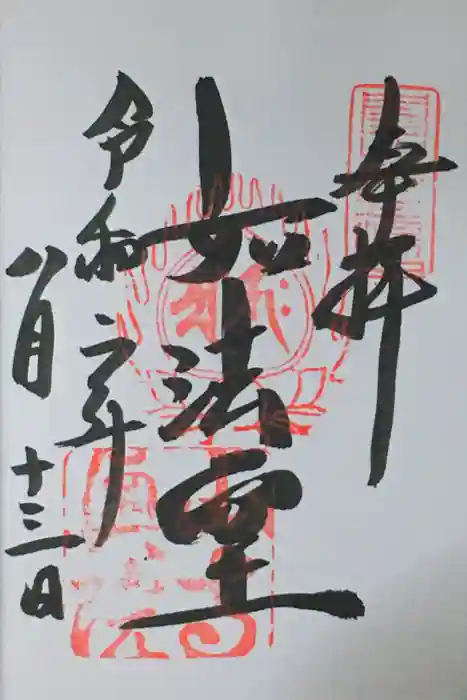 奉拝
如法堂
令和六年
八月
十三日